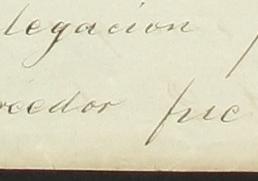 legacion
reedor fue